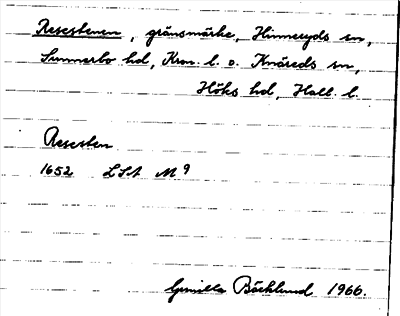 Resestenen, gränsmärke, Hinneryds sn,
Sunnerbo hd, Kron. l. o. Knäreds sn,
Höks hd, Hall. l.
Resesten
1652 LSA M9
Gunilla Bäcklund 1966.